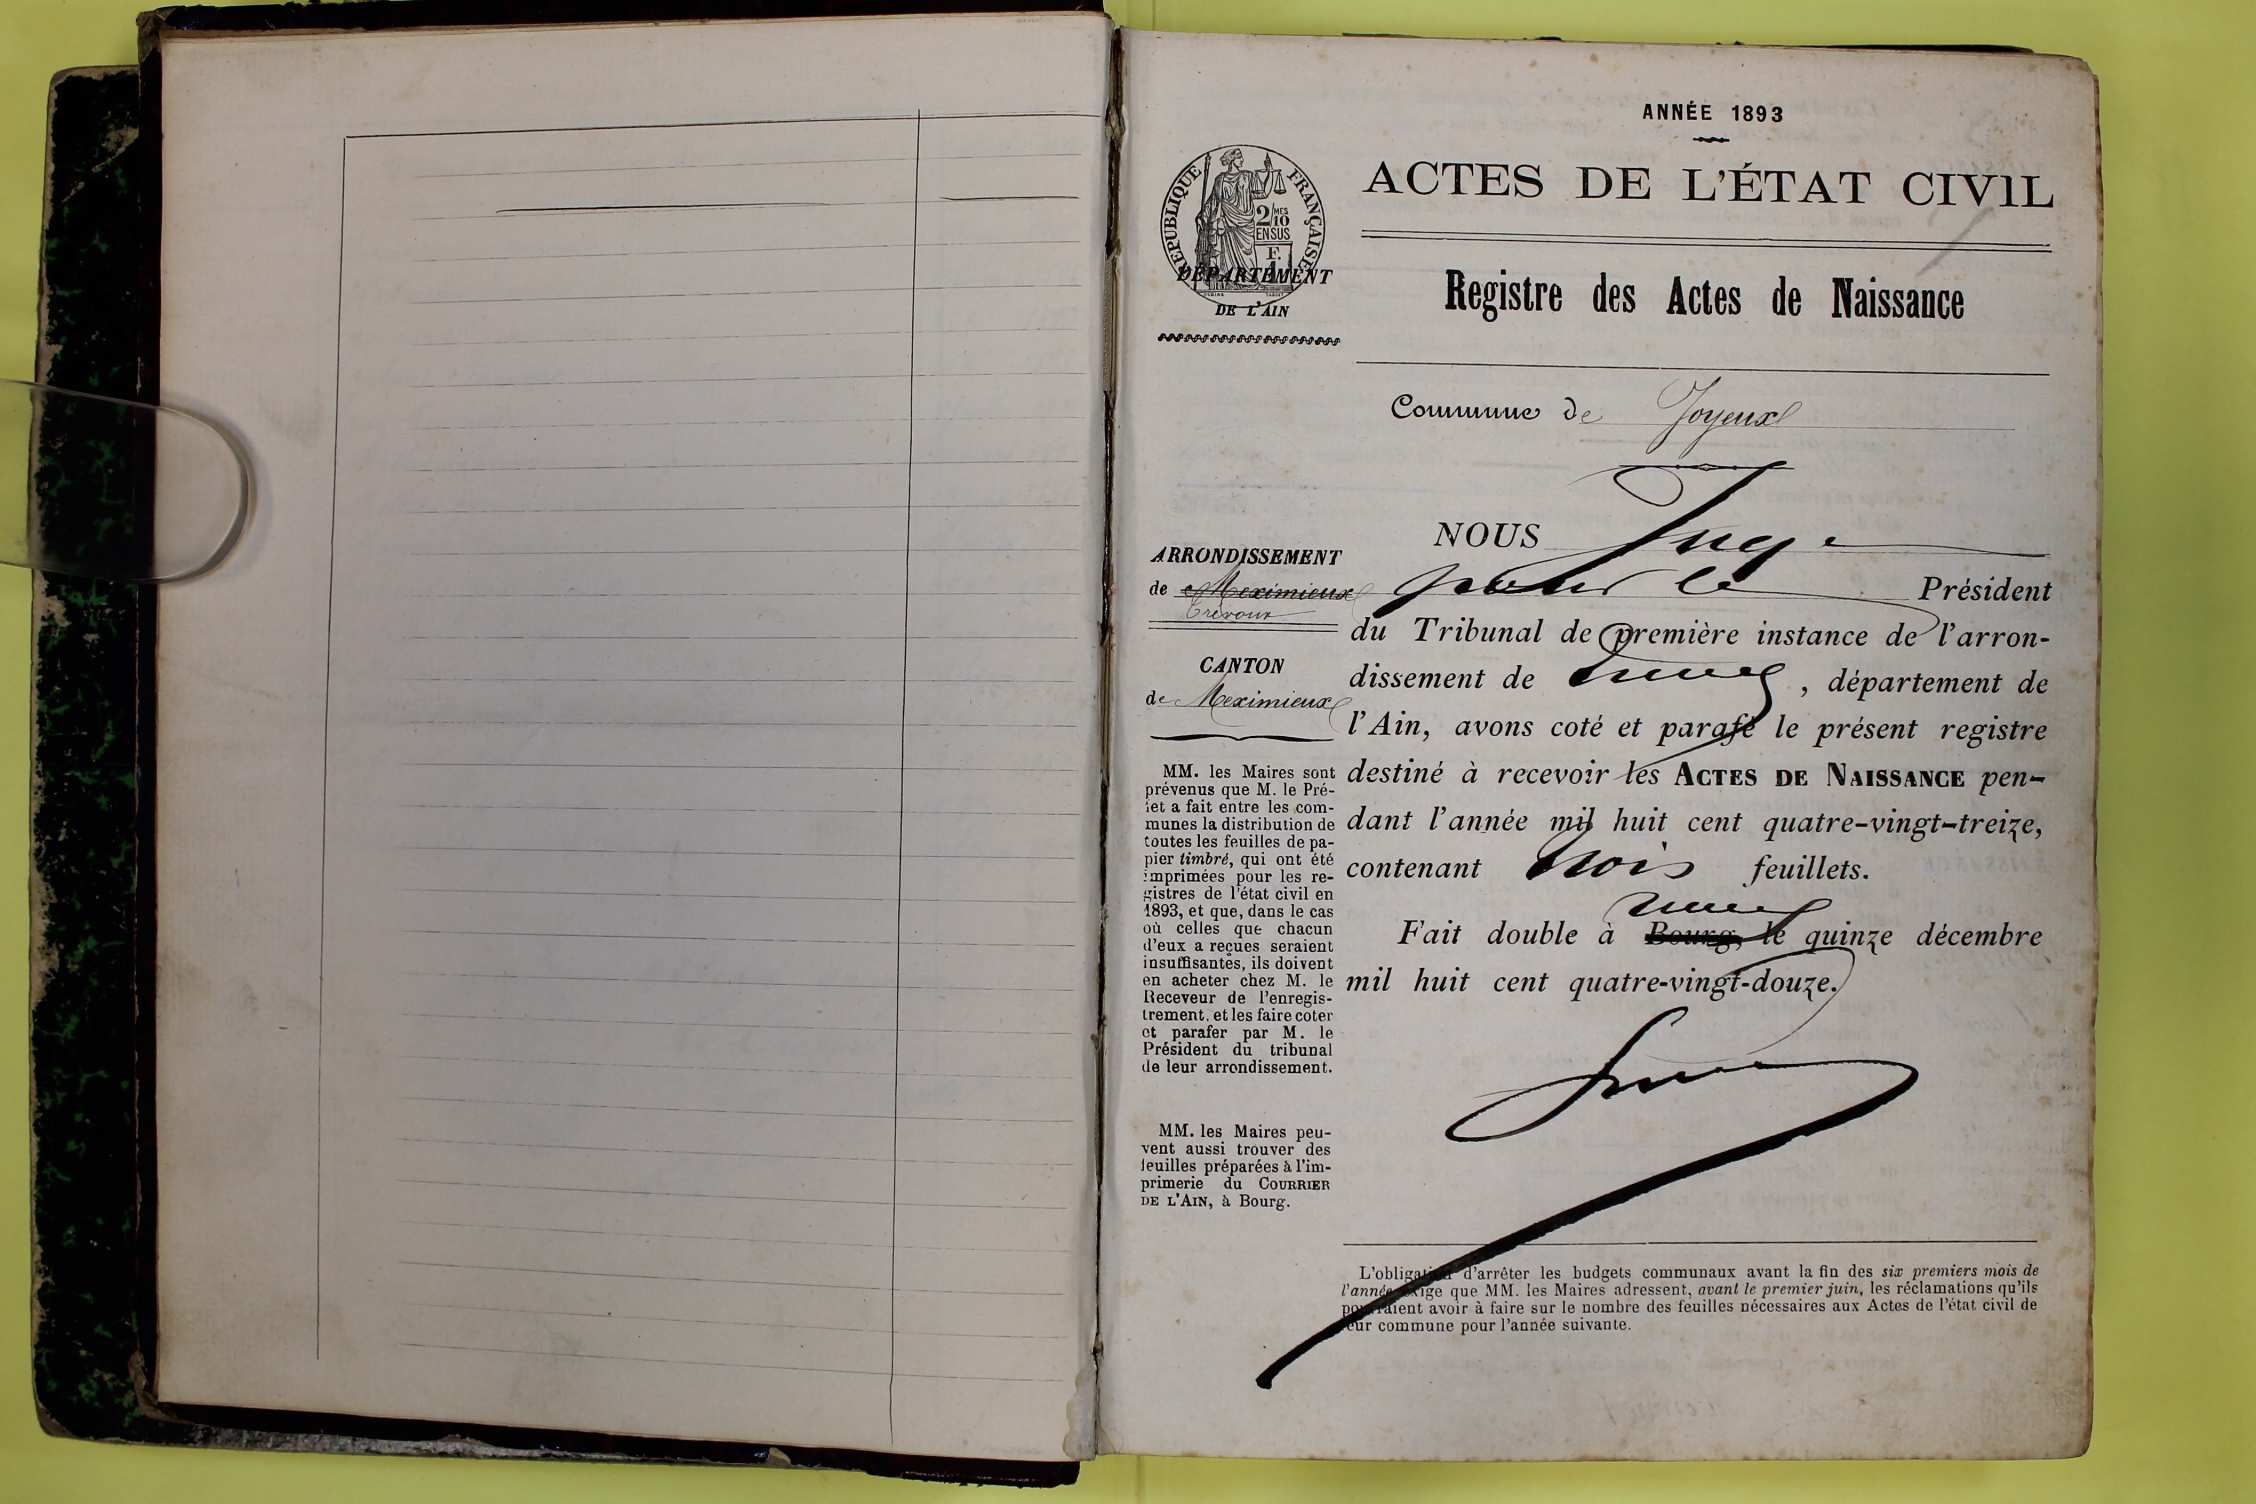 ANNÉE 1893
ACTES DE L'ÉTAT CIVIL
RÉPUBLIQUE FRANÇAISE
2/10 MES
EN SUS
F.
1
DÉPARTEMENT
DE L'AIN
Registre des Actes de Naissance
Commune de Joyeux
ARRONDISSEMENT
de Meximieux
Trévoux
CANTON
de Meximieux
MM. les Maires sont
prévenus que M. le Pré-
fet a fait entre les com-
munes la distribution de
toutes les feuilles de pa-
pier timbré, qui ont été
imprimées pour les re-
gistres de l'état civil en
1893, et que, dans le cas
où celles que chacun
d'eux a reçues seraient
insuffisantes, ils doivent
en acheter chez M. le
Receveur de l'enregis-
trement, et les faire coter
et parafer par M. le
Président du tribunal
de leur arrondissement.
MM. les Maires peu-
vent aussi trouver des
feuilles préparées à l'im-
primerie du COURRIER
DE L'AIN, à Bourg.
NOUS Juge
pour le Président
du Tribunal de première instance de l'arron-
dissement de Trévoux, département de
l'Ain, avons coté et parafé le présent registre
destiné à recevoir les ACTES DE NAISSANCE pen-
dant l'année mil huit cent quatre-vingt-treize,
contenant trois feuillets.
Trévoux
Fait double à Bourg, le quinze décembre
mil huit cent quatre-vingt-douze.
L'obligation d'arrêter les budgets communaux avant la fin des six premiers mois de
l'année exige que MM. les Maires adressent, avant le premier juin, les réclamations qu'ils
pourraient avoir à faire sur le nombre des feuilles nécessaires aux Actes de l'état civil de
leur commune pour l'année suivante.